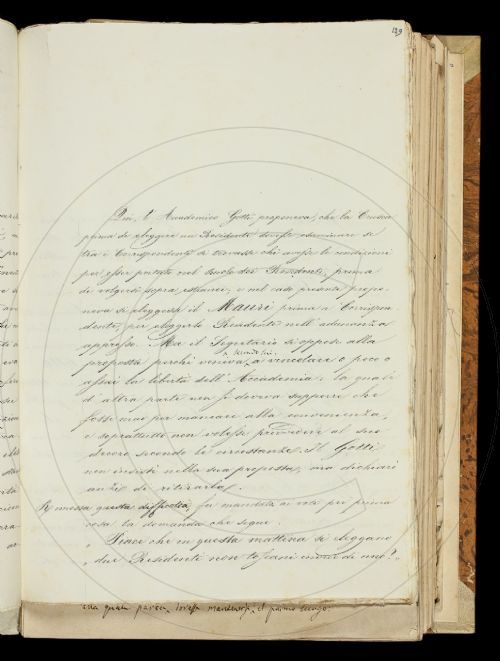 129
Qui, l'Accademico Gotti proponeva, che la Crusca
prima di eleggere un Residente dovesse esaminare se
tra i Corrispondenti si trovasse chi avesse le condizioni
per esser portato nel Ruolo dei Residenti, prima
di volgersi sopra estranei; e nel caso presente propo-
neva si eleggesse il Mauri prima a Corrispon-
dente, per eleggerlo Residente nell'adunanza
appresso. Ma il Segretario si oppose alla
secondo lui,
proposta perchè veniva a vincolare o poco o
assai la libertà dell'Accademia; la quale
d'altra parte non si doveva supporre che
fosse mai per mancare alla convenienza,
e soprattutto non volesse provvedere al suo
decoro secondo le circostanze. Il Gotti
non insistè nella sua proposta, ma dichiarò
anzi di ritirarla.
Rimossa questa difficoltà, fu mandata ai voti per prima
cosa la domanda che segue.
"Piace che in questa mattina si eleggano
"due Residenti non toscani invece di uno?"
alla quale pareva dovesse mantenersi il primo luogo.